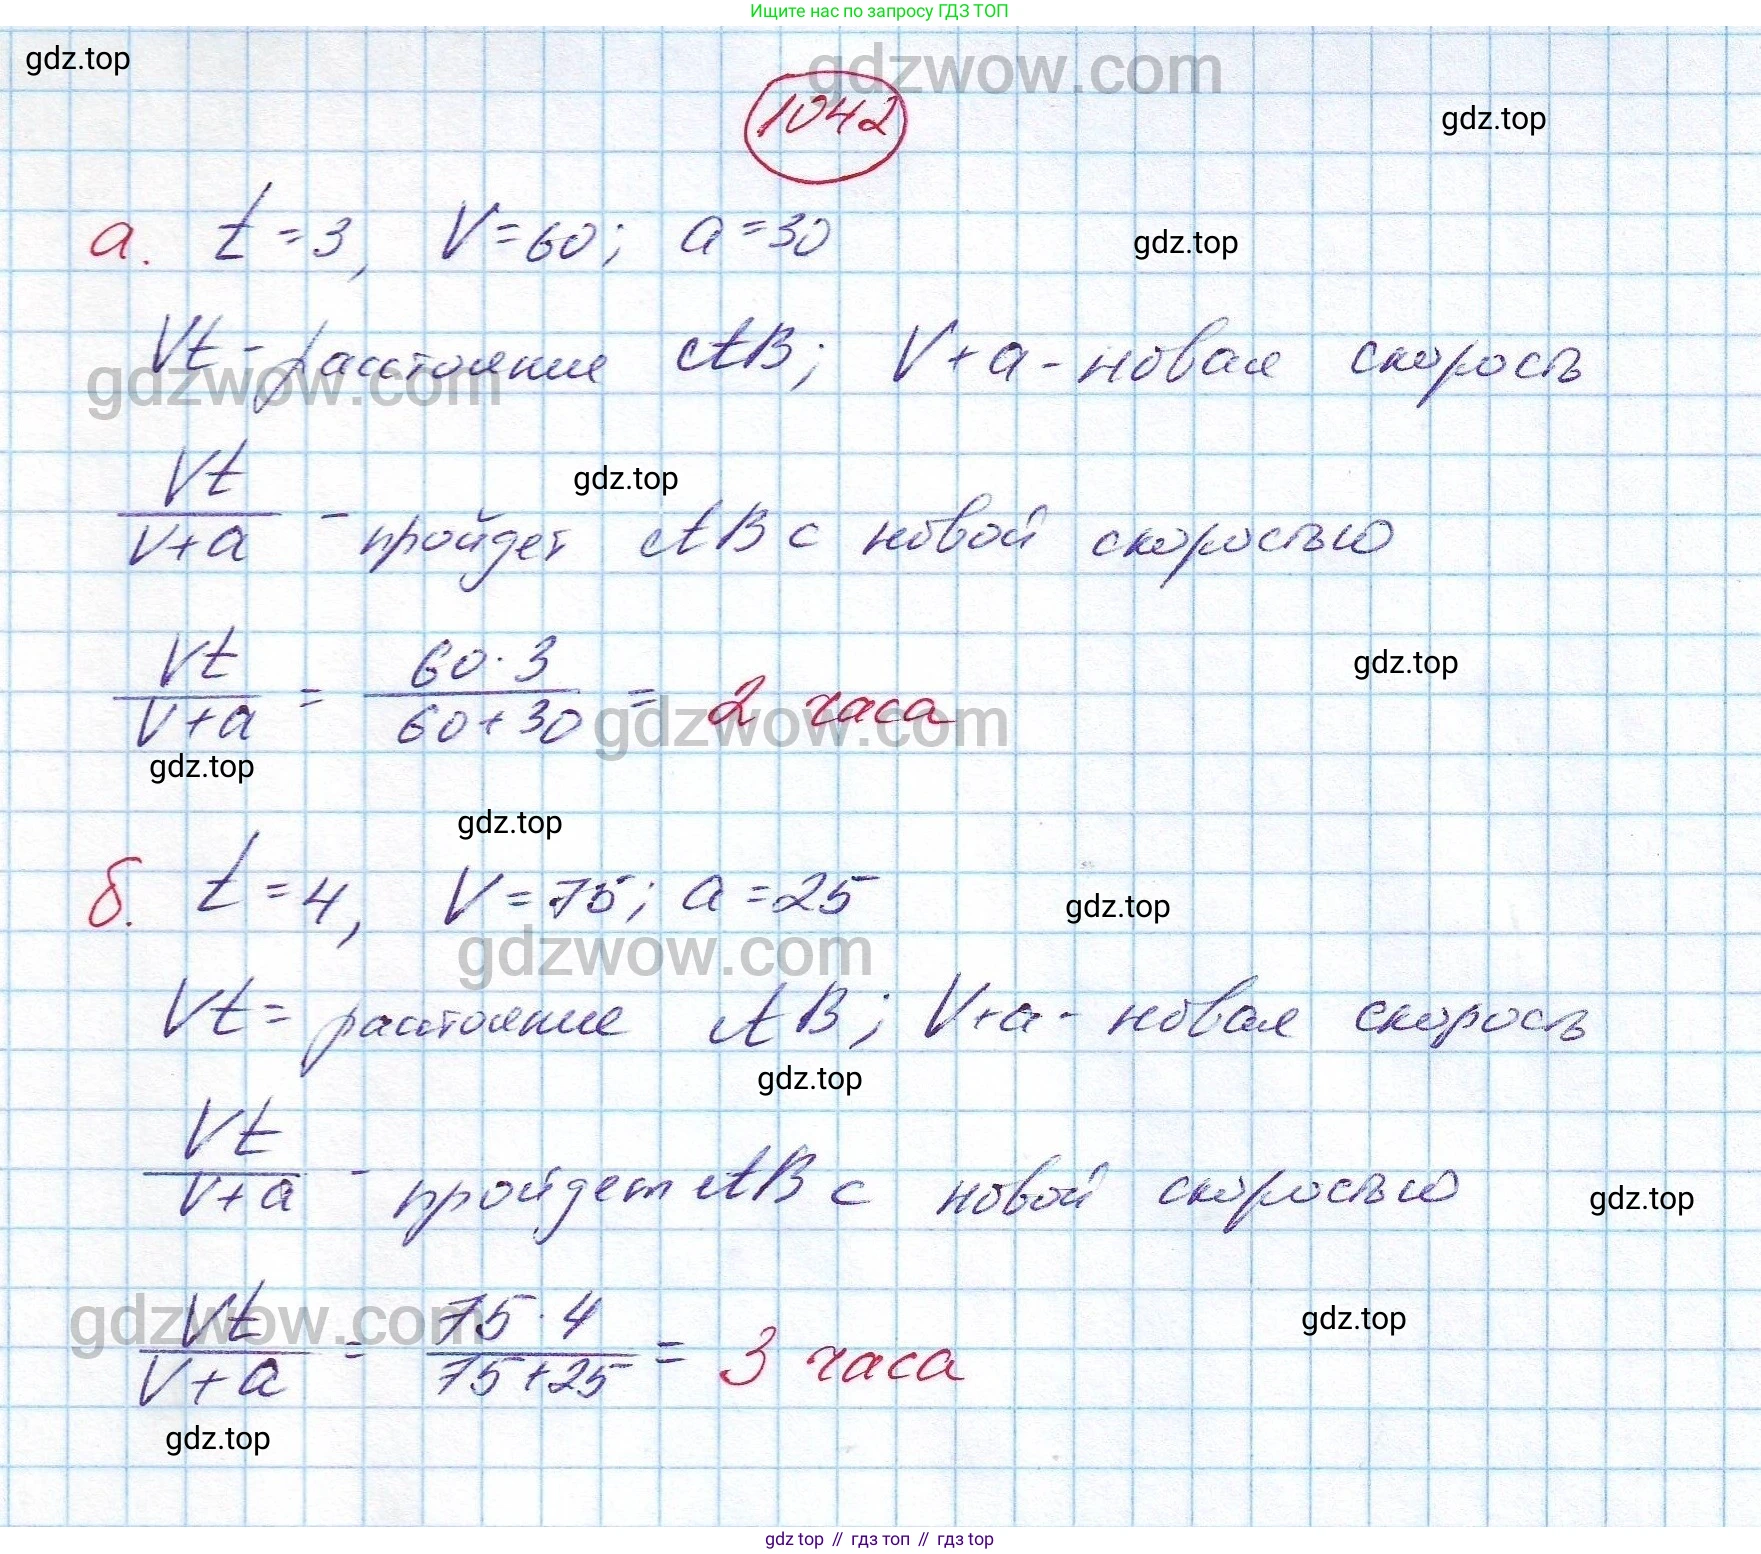 Ищите нас по запросу ГДЗ ТОП
gdzwow.com
gdz.top
1042
gdz.top
а. t = 3, V = 60; a = 30
gdz.top
Vt - расстояние AB; V + a - новая скорость
gdzwow.com
gdz.top
Vt
V+a
- пройдет AB с новой скоростью
gdz.top
Vt/V+a = 60·3/60+30 = 2 часа
gdzwow.com
gdz.top
gdz.top
б. t = 4, V = 75; a = 25
gdz.top
gdzwow.com
Vt = расстояние AB; V+a - новая скорость
gdz.top
Vt
V+a
- пройдет AB с новой скоростью
gdz.top
gdzwow.com
gdz.top
Vt/V+a = 75·4/75+25 = 3 часа
gdz.top
gdz.top // гдз топ // гдз top